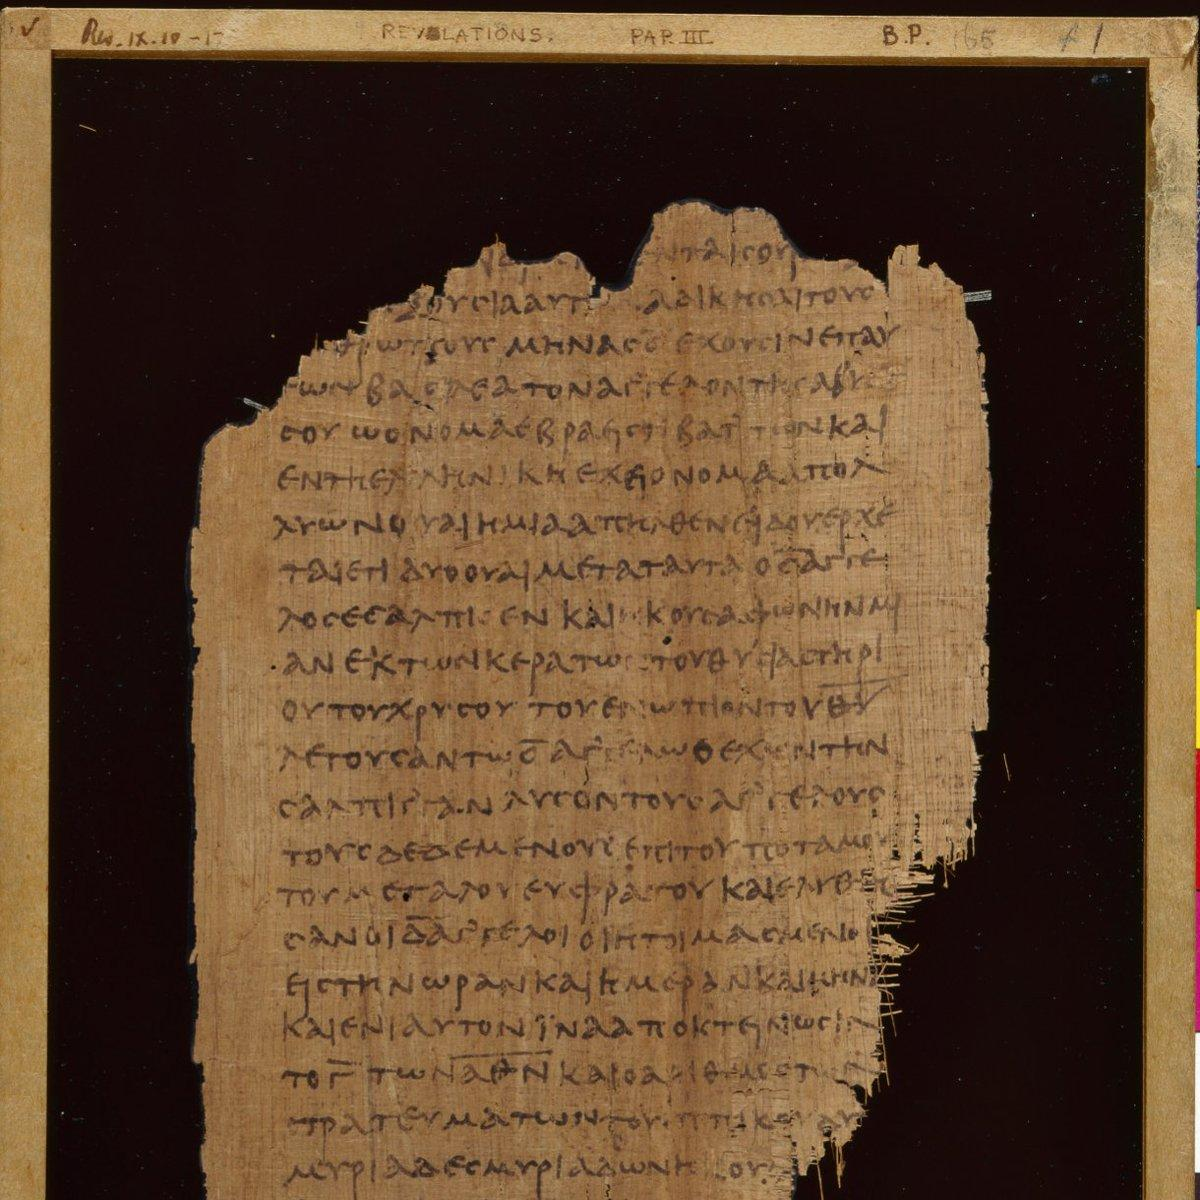 Rev. IX. 10-17 REVELATIONS. PAP. III. B.P. 165 f 1
ΝΤΑΙϹΟΥ
ΞΟΥϹΙΑΑΥΤ ΑΔΙΚΗϹΑΙΤΟΥϹ
ΑΝΘΡΩΠΟΥϹ ΜΗΝΑϹ Ε̅ ΕΧΟΥϹΙΝΕΠΑΥ
ΤΩΝ ΒΑϹΙΛΕΑΤΟΝΑΓ'ΓΕΛΟΝΤΗϹΑΒΥϹ
ϹΟΥ ΩΟΝΟΜΑΕΒΡΑΕΙϹΤΙ ΒΑΤ ΤΩΝΚΑΙ
ΕΝΤΗΕΛΛΗΝΙΚΗΕΧΕΙΟΝΟΜΑΑΠΟΛ
ΛΥΩΝΟΥΑΙΗΜΙΑΑΠΗΛΘΕΝΕΙΔΟΥΕΡΧΕ
ΤΑΙΕΤΙ ΔΥΟΟΥΑΙΜΕΤΑΤΑΥΤΑ Ο Ϛ̅ ΑΓ'ΓΕ
ΛΟϹΕϹΑΛΠΙϹΕΝ ΚΑΙΗΚΟΥϹΑΦΩΝΗΝΜΙ
ΑΝ ΕΚΤΩΝΚΕΡΑΤΩΝΤΟΥΘΥϹΙΑϹΤΗΡΙ
ΟΥΤΟΥΧΡΥϹΟΥ ΤΟΥΕΝΩΠΙΟΝΤΟΥΘ̅Υ̅
ΛΕΓΟΥϹΑΝΤΩ Ϛ̅ ΑΓ'ΓΕΛΩΟΕΧΩΝΤΗΝ
ϹΑΛΠΙΓΓΑΝ ΛΥϹΟΝΤΟΥϹΑΓ'ΓΕΛΟΥϹ
ΤΟΥϹΔΕΔΕΜΕΝΟΥϹ ΕΠΙΤΟΥΠΟΤΑΜΟΥ
ΤΟΥΜΕΓΑΛΟΥ ΕΥΦΡΑΤΟΥ ΚΑΙΕΛΥΘΗ
ϹΑΝΟΙ Δ̅ ΑΓ'ΓΕΛΟΙ ΟΙΗΤΟΙΜΑϹΜΕΝΟ
ΕΙϹΤΗΝΩΡΑΝΚΑΙΗΜΕΡΑΝΚΑΙΜΗΝ
ΚΑΙΕΝΙΑΥΤΟΝ ΪΝΑΑΠΟΚΤΕΙΝΩϹΙΝ
ΤΟ Γ̅ ΤΩΝΑ̅Θ̅Ν̅ ΚΑΙΟΑΡΙΘΜΟϹΤΩΝ
ΤΡΑΤΕΥΜΑΤΩΝΤΟΥΙΠΠΙΚΟΥ ΔΥ
ΜΥΡΙΑΔΕϹΜΥΡΙΑΔΩΝΗ ΟΥ